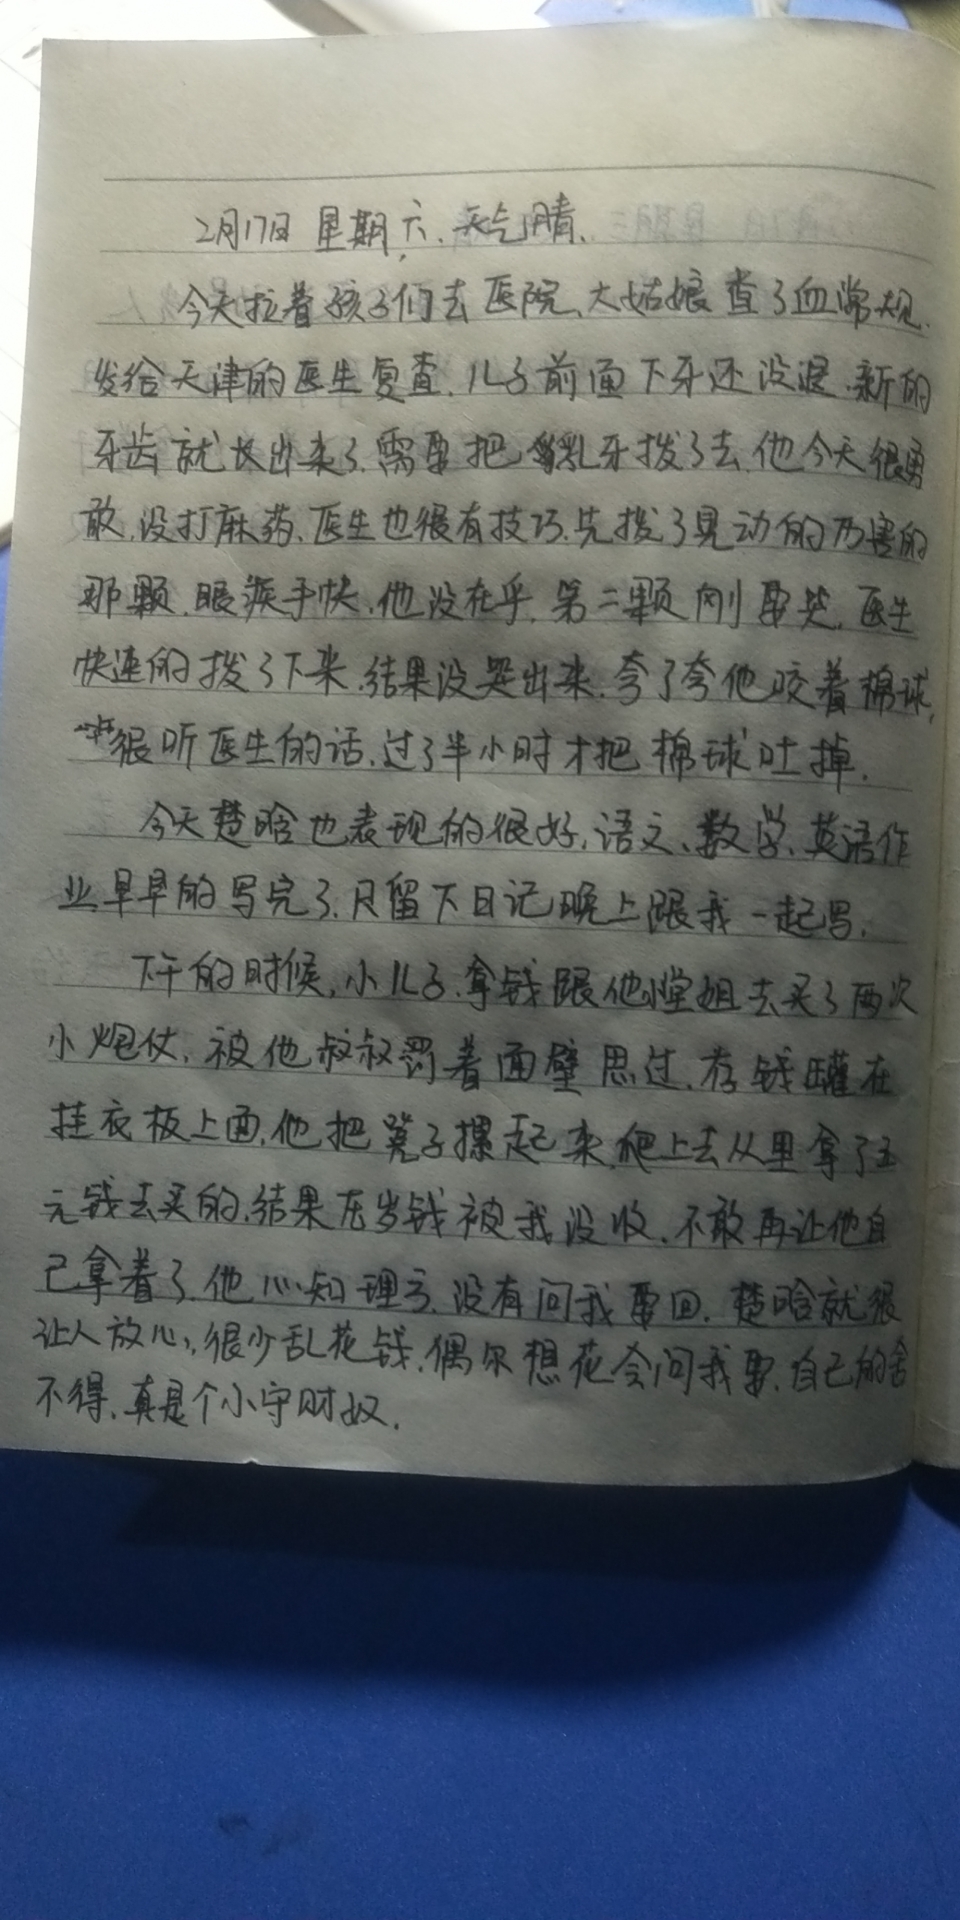 2月17日 星期六、天气晴、
今天拉着孩子们去医院、大姑娘查了血常规、
发给天津的医生复查、儿子前面下牙还没退、新的
牙齿就长出来了、需要把乳牙拨了去、他今天很勇
敢、没打麻药、医生也很有技巧、先拨了晃动的厉害的
那颗、眼疾手快、他没在乎、第二颗刚要哭、医生
快速的拨了下来、结果没哭出来、夸了夸他咬着棉球、
很听医生的话、过了半小时才把棉球吐掉、
今天楚晗也表现的很好、语文、数学、英语作
业早早的写完了、只留下日记晚上跟我一起写、
下午的时候、小儿子、拿钱跟他堂姐去买了两次
小炮仗、被他叔叔罚着面壁思过、存钱罐在
挂衣板上面、他把凳子摞起来、爬上去从里拿了五
元钱去买的、结果压岁钱被我没收、不敢再让他自
己拿着了、他心知理亏、没有问我要回、楚晗就很
让人放心、很少乱花钱、偶尔想花会问我要、自己的舍
不得、真是个小守财奴、